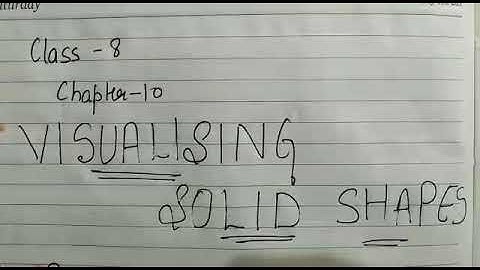 Class - 8
Chapter-10
VISUALISING
SOLID SHAPES